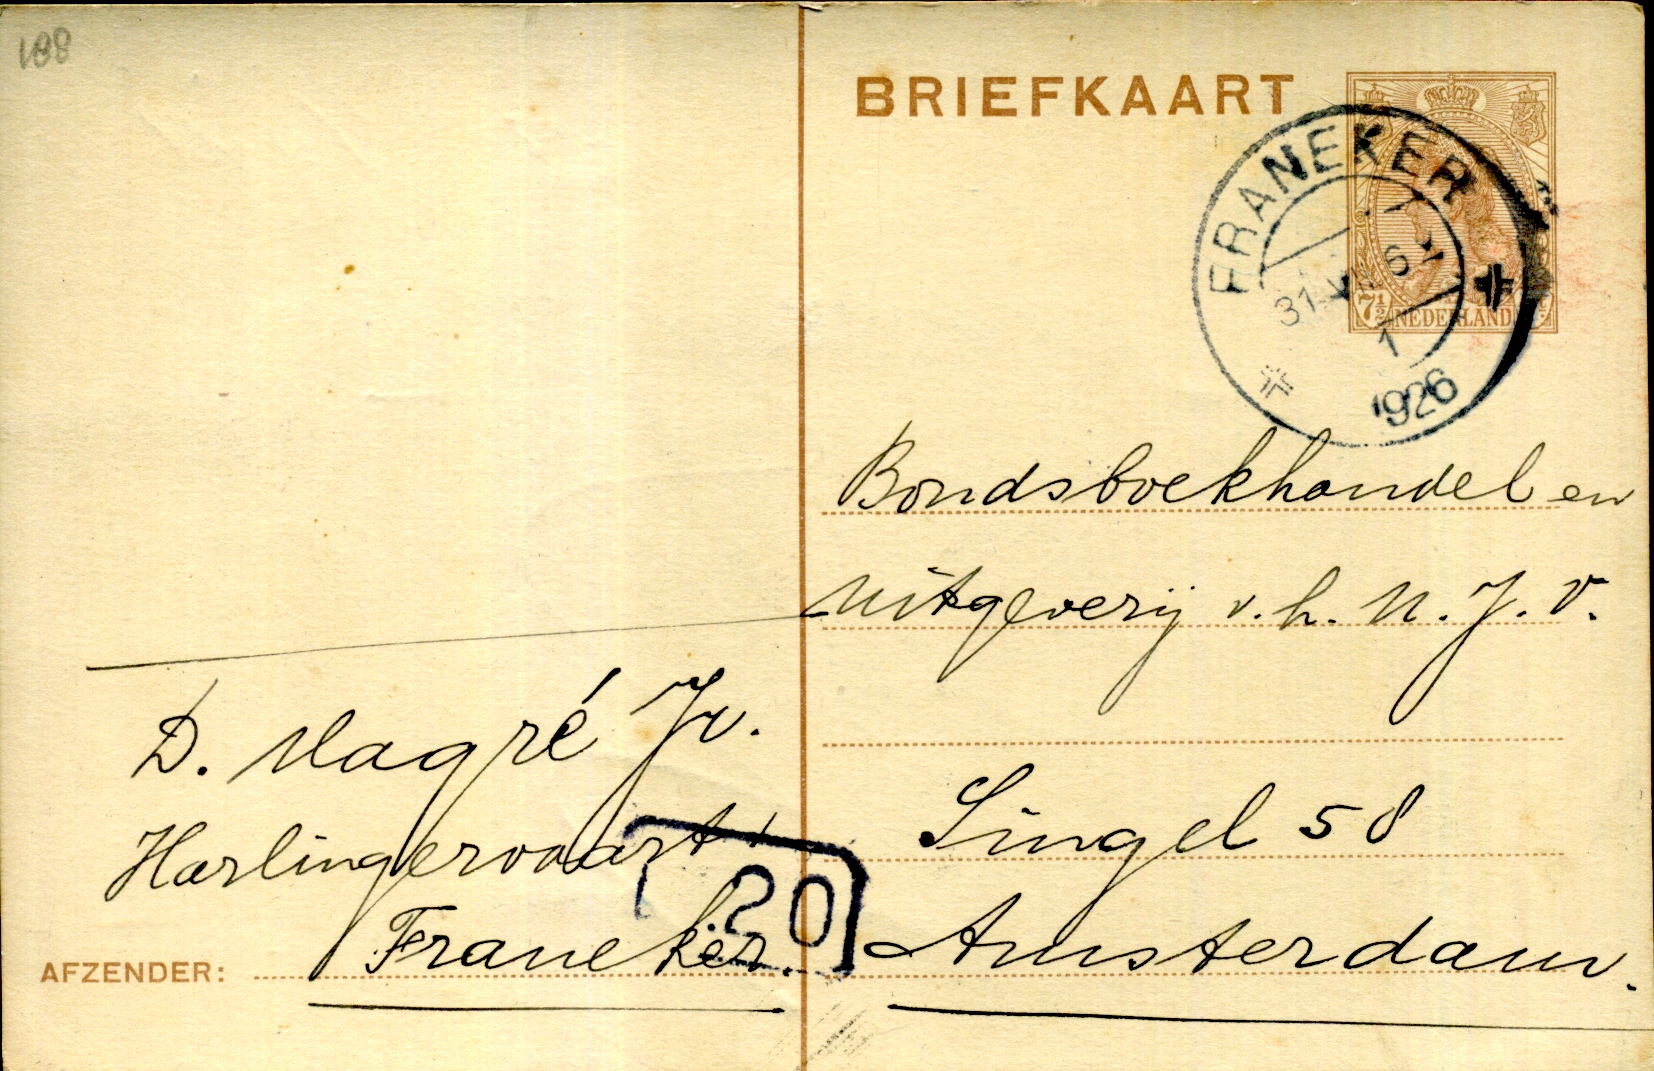 188
BRIEFKAART
FRANEKER
31 6
1
1926
7½ NEDERLAND
Bondsboekhandel en
Uitgeverij v. h. N. J. V.
Singel 58
Amsterdam.
D. Magré Jr.
Harlingervaart
Franeker.
20
AFZENDER: